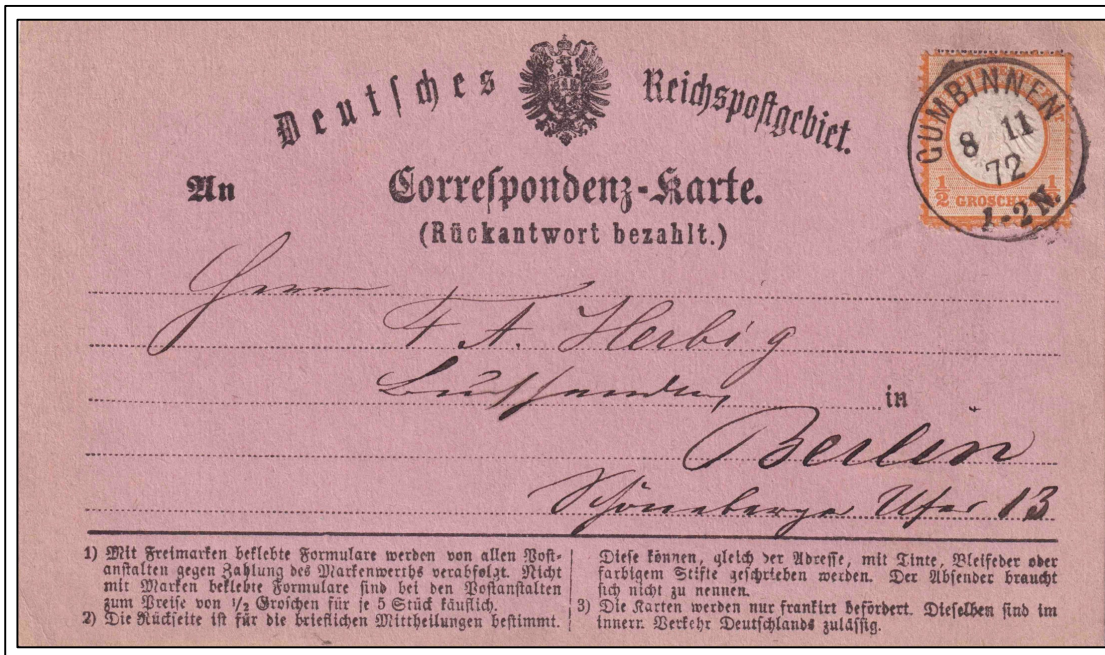 Deutsches Reichspostgebiet.
GUMBINNEN
8 11
72
1-2 N.
1/2 GROSCHEN 1/2
An Correspondenz-Karte.
(Rückantwort bezahlt.)
Herrn
F A. Herbig
in
Berlin
Schöneberger Ufer 13
1) Mit Freimarken beklebte Formulare werden von allen Post-
anstalten gegen Zahlung des Markenwerths verabfolgt. Nicht
mit Marken beklebte Formulare sind bei den Postanstalten
zum Preise von 1/2 Groschen für je 5 Stück käuflich.
2) Die Rückseite ist für die brieflichen Mittheilungen bestimmt.
Diese können, gleich der Adresse, mit Tinte, Bleifeder oder
farbigem Stifte geschrieben werden. Der Absender braucht
sich nicht zu nennen.
3) Die Karten werden nur frankirt befördert. Dieselben sind im
innern Verkehr Deutschlands zulässig.